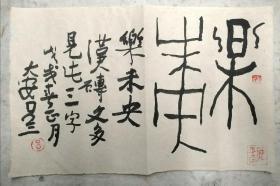 樂
未央
樂未央
漢磚文多
見此三字
戊戌春正月